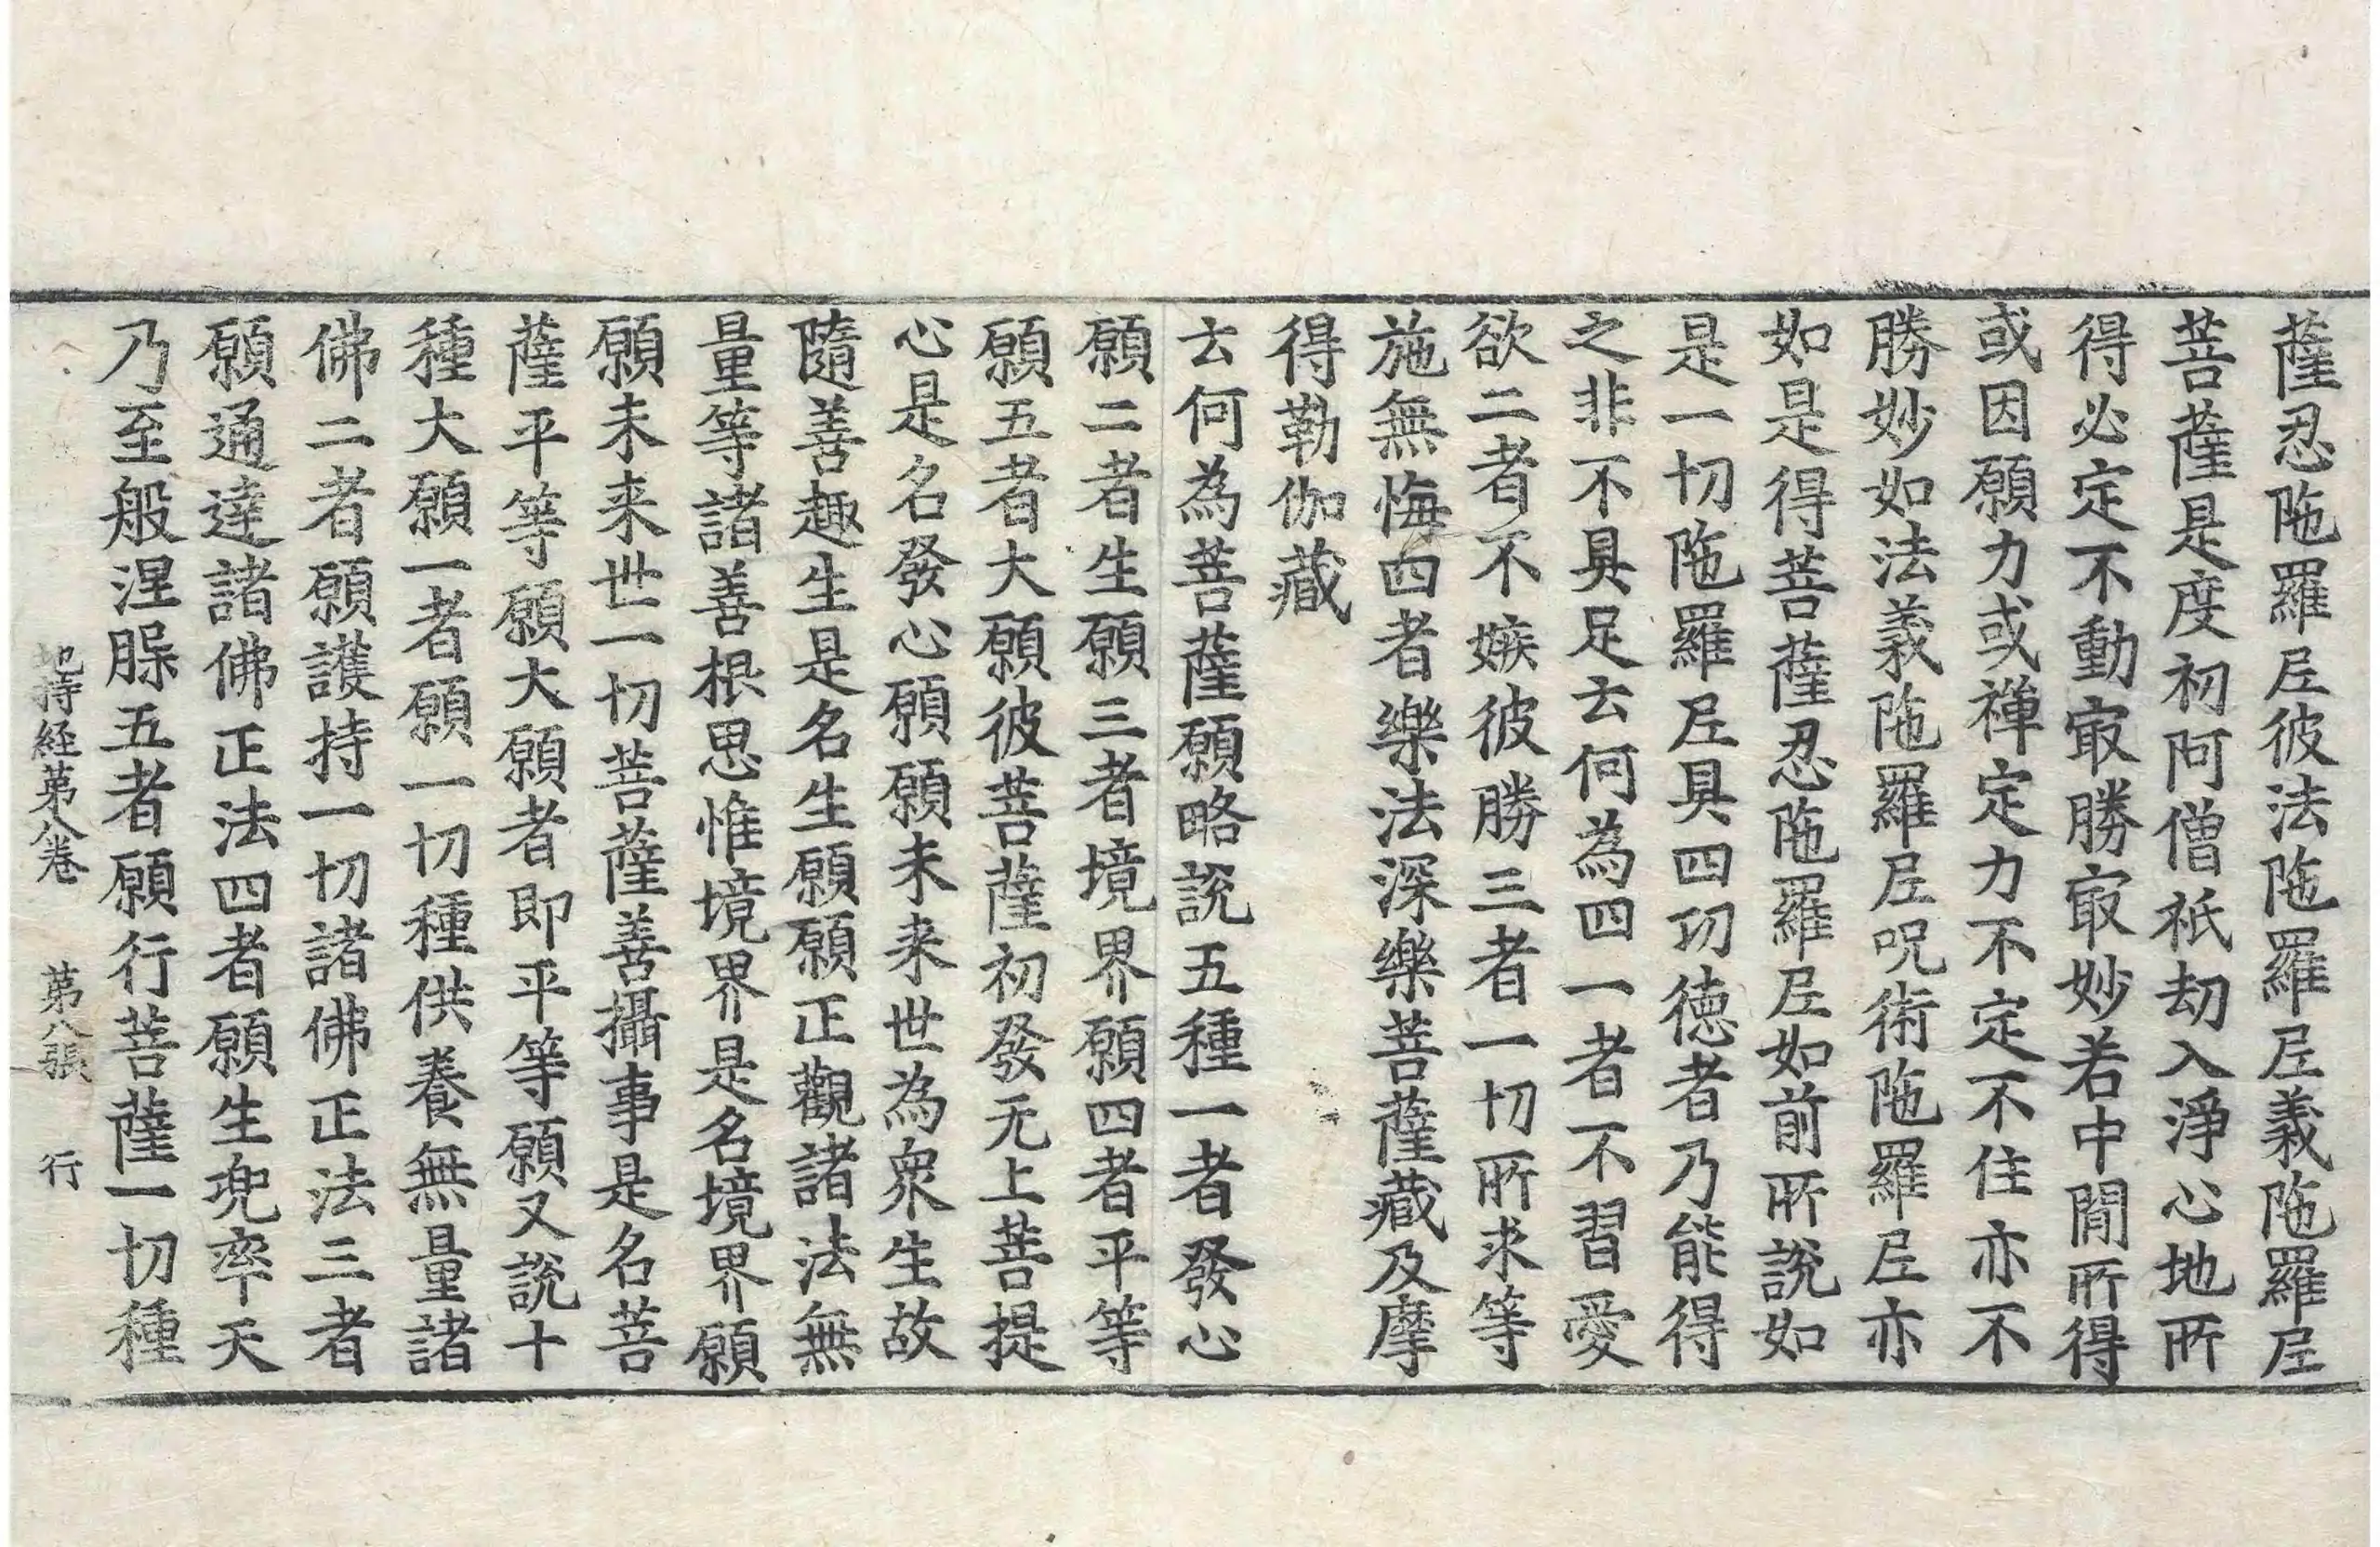 薩忍陁羅𡰱彼法陁羅𡰱義陁羅𡰱
菩薩是度初阿僧祇劫入淨心地所
得必定不動㝡勝㝡妙若中間所得
或因願力或禪定力不定不住亦不
勝妙如法義陁羅𡰱呪術陁羅𡰱亦
如是得菩薩忍陁羅𡰱如前所說如
是一切陁羅𡰱具四功徳者乃能得
之非不具足云何為四一者不習愛
欲二者不嫉彼勝三者一切所求等
施無悔四者樂法深樂菩薩藏及摩
得勒伽藏
云何為菩薩願略說五種一者發心
願二者生願三者境界願四者平等
願五者大願彼菩薩初發无上菩提
心是名發心願願未来世為衆生故
隨善趣生是名生願願正觀諸法無
量等諸善根思惟境界是名境界願
願未来世一切菩薩善攝事是名菩
薩平等願大願者即平等願又說十
種大願一者願一切種供養無量諸
佛二者願護持一切諸佛正法三者
願通達諸佛正法四者願生兜率天
乃至般涅槃五者願行菩薩一切種
地持経苐八卷 苐八張 行